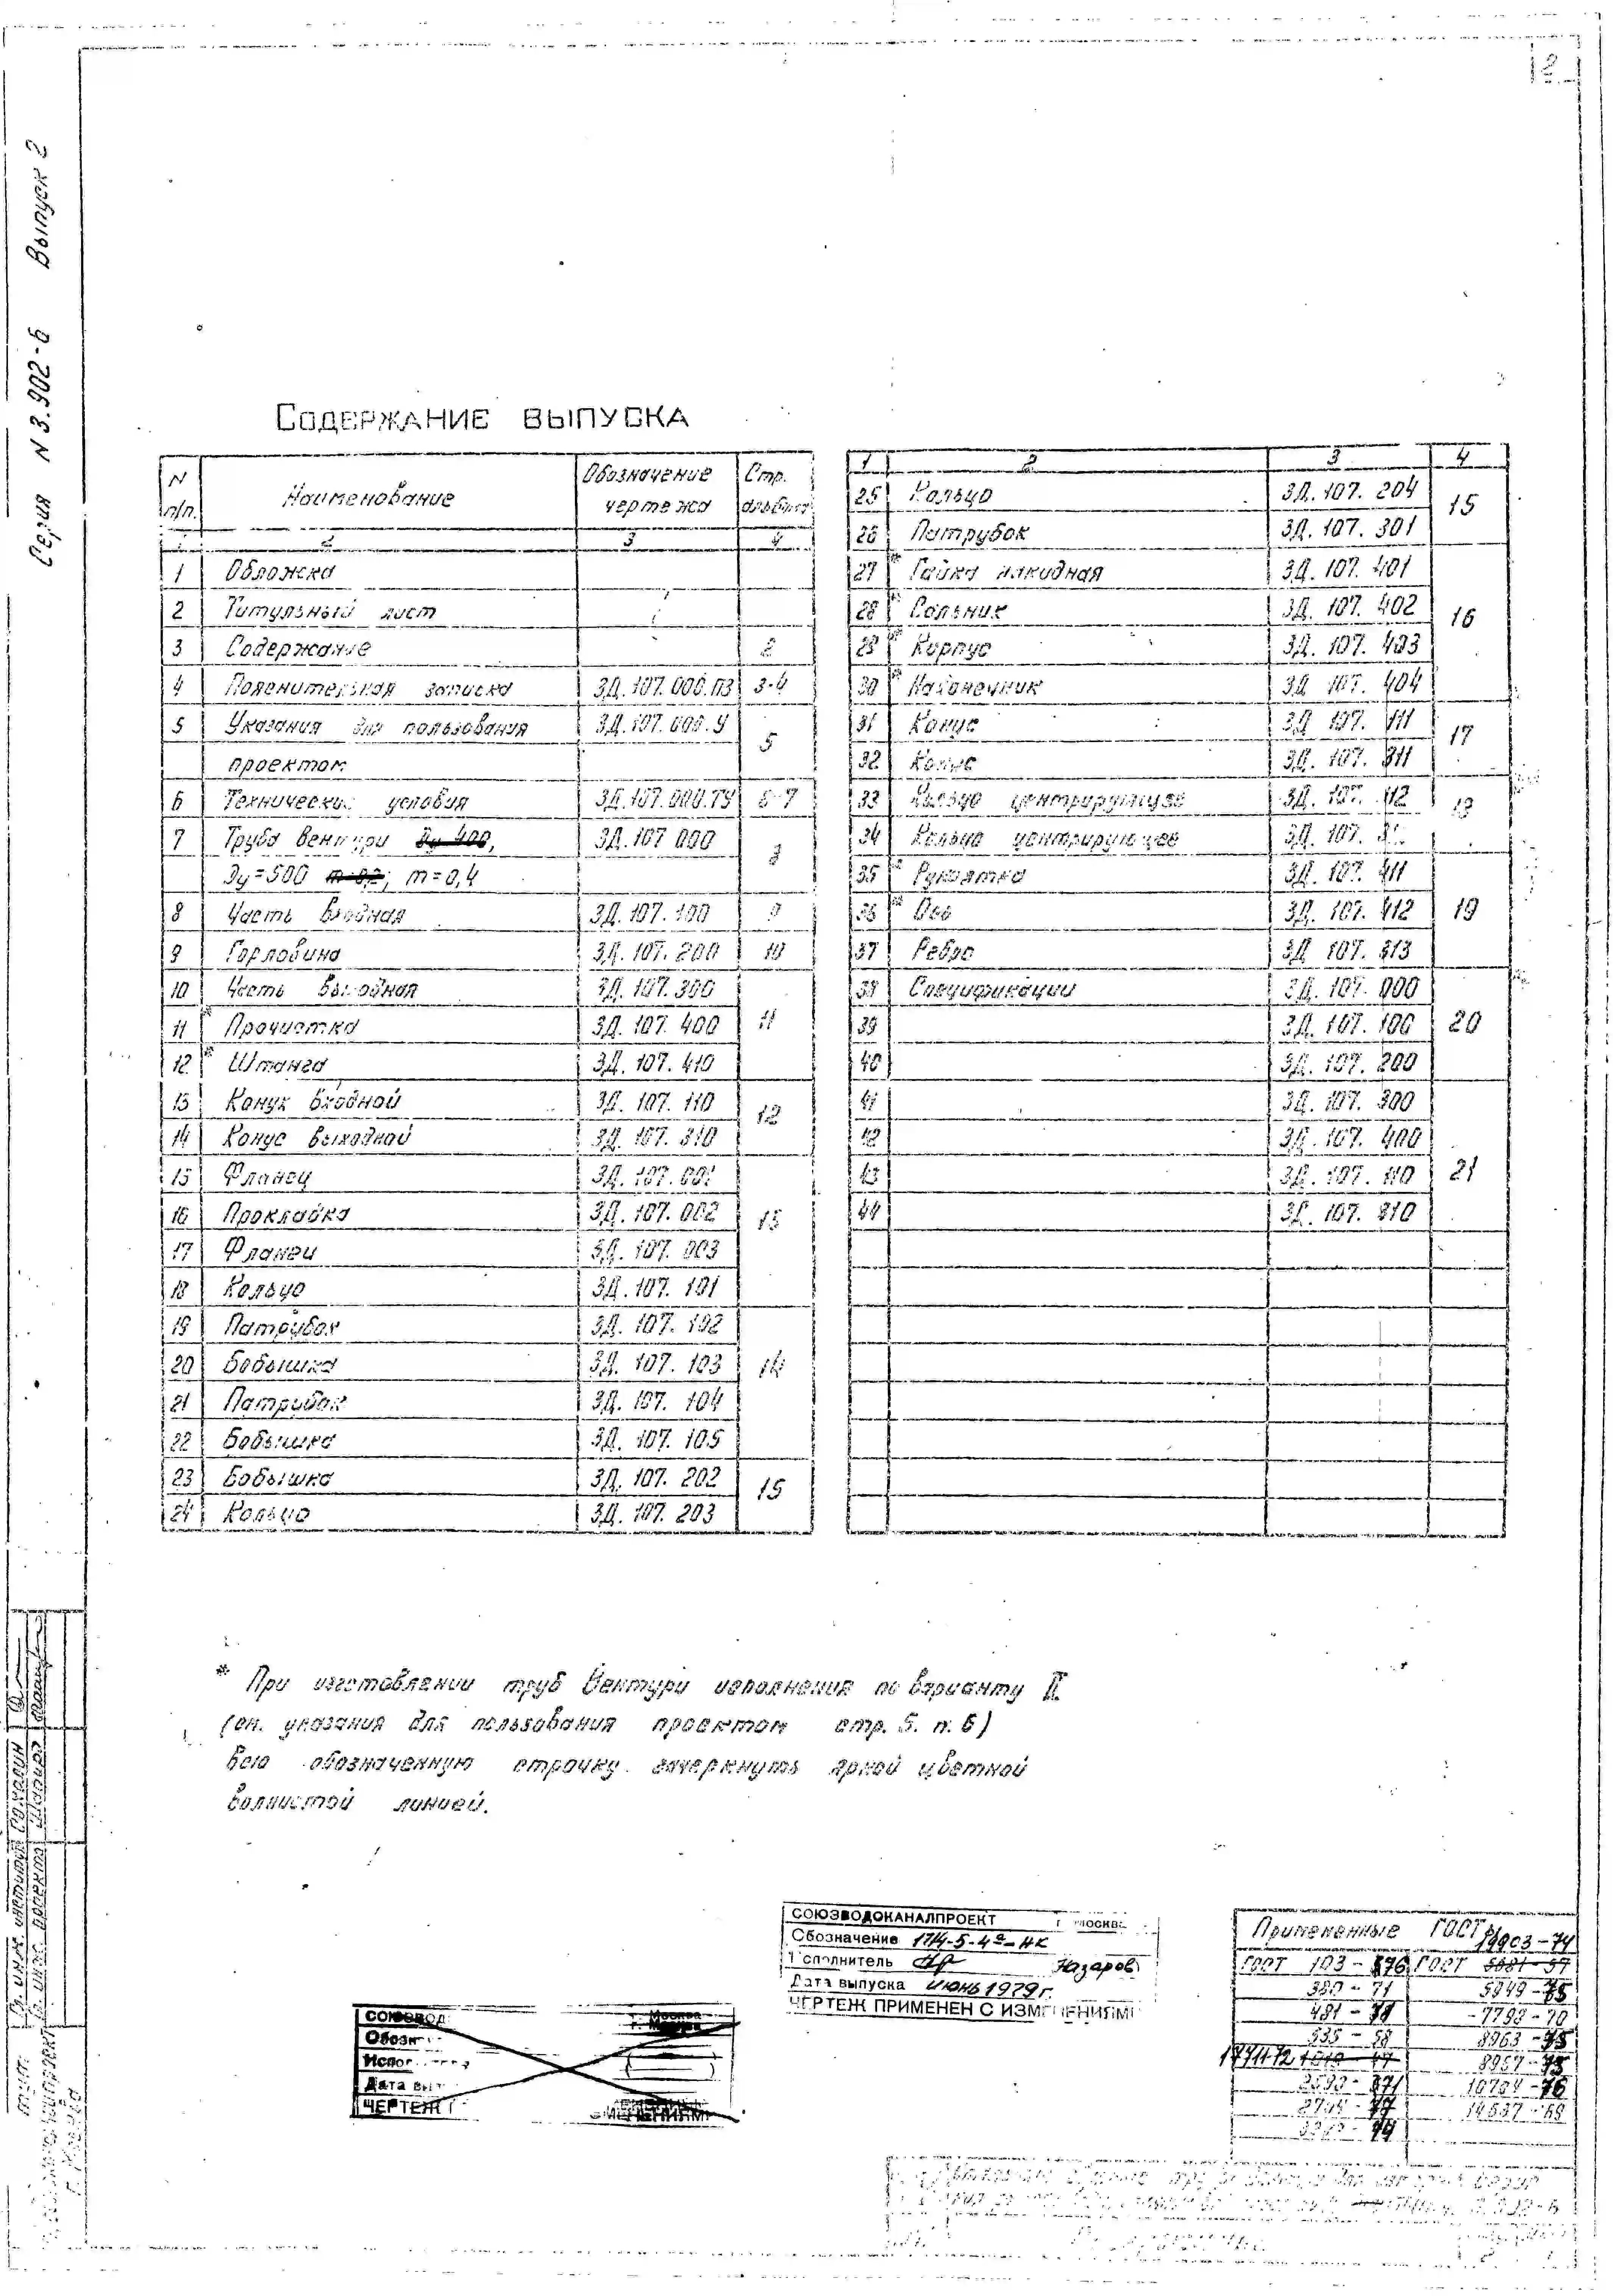 2
Серия N 3.902-6 Выпуск 2
СОДЕРЖАНИЕ ВЫПУСКА
N п/п. Наименование Обозначение чертежа Стр.
1 2 3 4
1 Обложка
2 Титульный лист
3 Содержание 2
4 Пояснительная записка 3Д.107.000.ПЗ 3-4
5 Указания для пользования 3Д.107.000.У 5
проектом
6 Технические условия 3Д.107.000.ТУ 6-7
7 Труба Вентури Ду 400, 3Д.107 000
Ду=500 m=0,4
8 Часть входная 3Д.107.100 9
9 Горловина 3Д.107.200 10
10 Часть выходная 3Д.107.300 11
11 * Прочистка 3Д.107.400
12 * Штанга 3Д.107.410
13 Конус входной 3Д.107.110 12
14 Конус выходной 3Д.107.310
15 Фланец 3Д.107.001
16 Прокладка 3Д.107.002
17 Фланец 3Д.107.003
18 Кольцо 3Д.107.101
19 Патрубок 3Д.107.102 14
20 Бобышка 3Д.107.103
21 Патрубок 3Д.107.104
22 Бобышка 3Д.107.105
23 Бобышка 3Д.107.202 15
24 Кольцо 3Д.107.203
1 2 3 4
25 Кольцо 3Д.107.204 15
26 Патрубок 3Д.107.301
27 * Гайка накидная 3Д.107.401 16
28 * Сальник 3Д.107.402
29 * Корпус 3Д.107.403
30 * Наконечник 3Д.107.404
31 Конус 3Д.107.111 17
32 Конус 3Д.107.311
33 Кольцо центрирующее 3Д.107.112
34 Кольцо центрирующее 3Д.107.
35 * Рукоятка 3Д.107.411 19
36 * Ось 3Д.107.412
37 Ребро 3Д.107.313
38 Спецификации 3Д.107.000 20
39 3Д.107.100
40 3Д.107.200
41 3Д.107.300 21
42 3Д.107.400
43 3Д.107.110
44 3Д.107.310
* При изготовлении труб Вентури исполнения по варианту II
(см. указания для пользования проектом стр. 5. п. 6)
всю обозначенную строчку зачеркнуть яркой цветной
волнистой линией.
СОЮЗВОДОКАНАЛПРОЕКТ г. МОСКВА
Обозначение 1714-5-4а-НК
Исполнитель Назаров
Дата выпуска июнь 1979 г.
ЧЕРТЕЖ ПРИМЕНЕН С ИЗМЕНЕНИЯМИ
СОЮЗВОД г. Москва
Обозн
Испол
Дата вы
ЧЕРТЕЖ
Примененные ГОСТы
19903-74
ГОСТ 103-76 ГОСТ 5681-57
380-71 5949-75
7798-70
535-58 8963-75
8957-75
14637-69